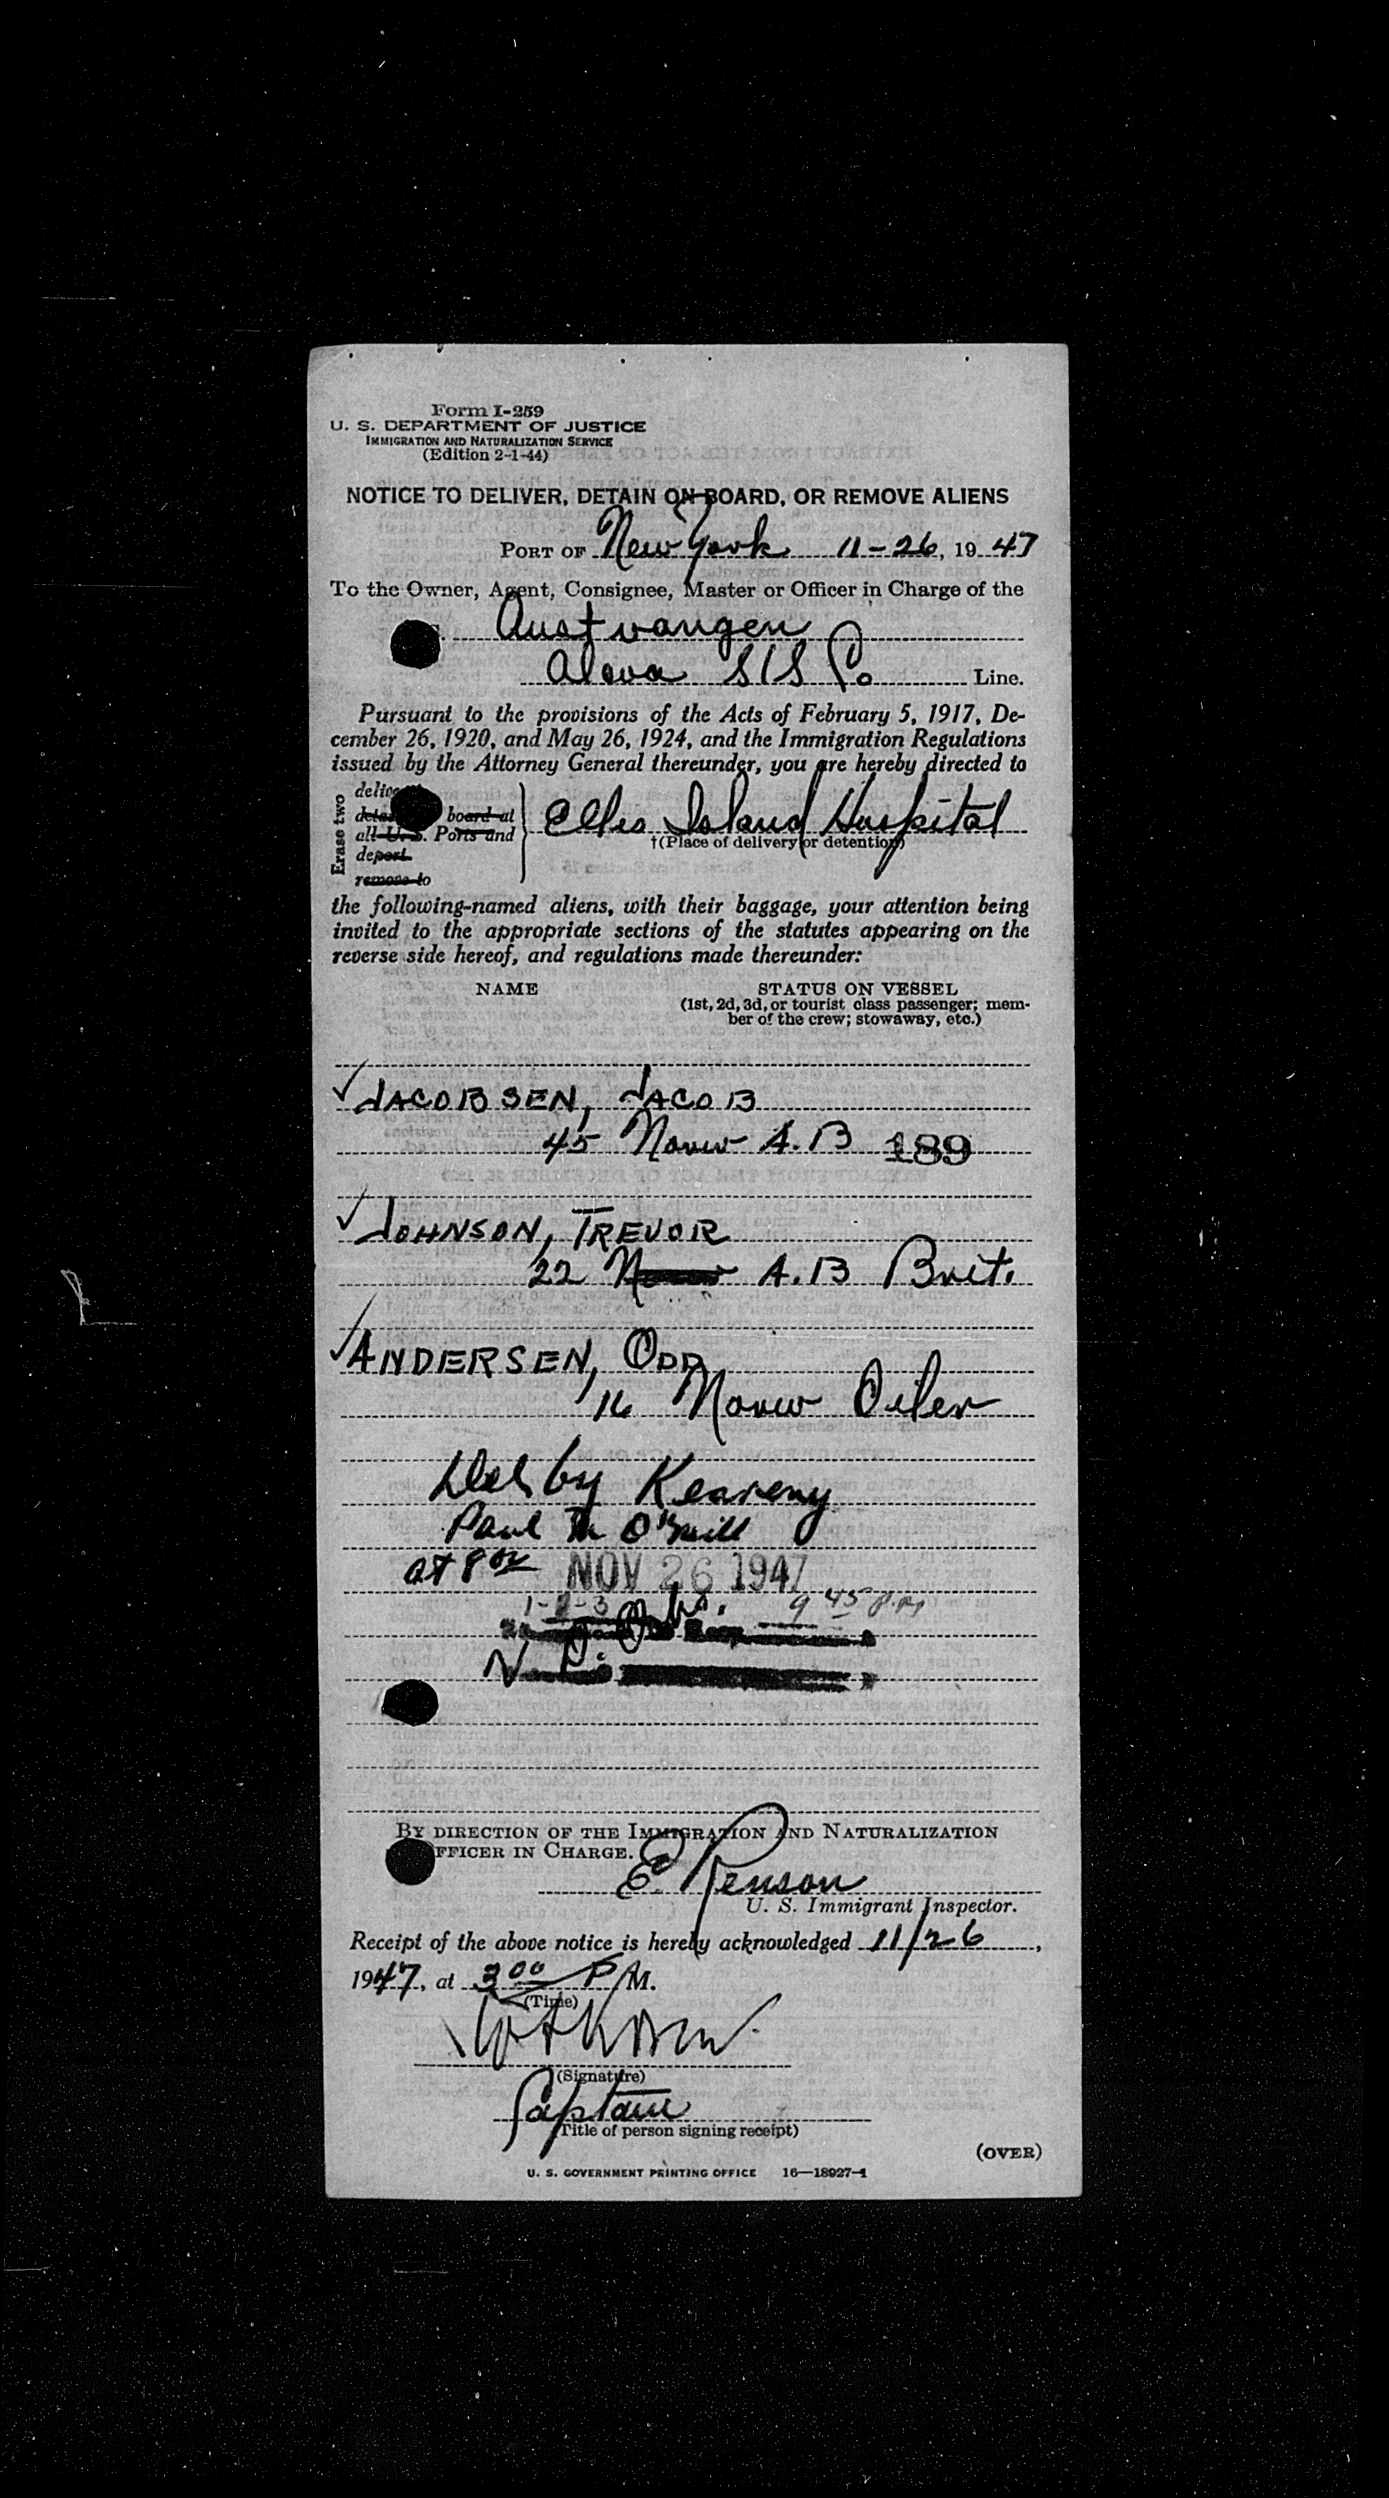 Form I-259
U. S. DEPARTMENT OF JUSTICE
IMMIGRATION AND NATURALIZATION SERVICE
(Edition 2-1-44)
NOTICE TO DELIVER, DETAIN ON BOARD, OR REMOVE ALIENS
PORT OF New York 11-26, 1947
To the Owner, Agent, Consignee, Master or Officer in Charge of the
Austvangen
Alcoa S/S Co Line.
Pursuant to the provisions of the Acts of February 5, 1917, De-
cember 26, 1920, and May 26, 1924, and the Immigration Regulations
issued by the Attorney General thereunder, you are hereby directed to
Erase two
board at
all U. S. Ports and
deport
remove to
Ellis Island Hospital
†(Place of delivery or detention)
the following-named aliens, with their baggage, your attention being
invited to the appropriate sections of the statutes appearing on the
reverse side hereof, and regulations made thereunder:
NAME STATUS ON VESSEL
(1st, 2d, 3d, or tourist class passenger; mem-
ber of the crew; stowaway, etc.)
✓ JACOBSEN, JACOB
45 Norw A.B 189
✓ JOHNSON, TREVOR
22 Norw A.B Brit.
✓ ANDERSEN, ODD
16 Norw Oiler
Del by Keareny
Paul M O'Neill
at 8 00 NOV 26 1947
1-2-3 9 45 p.m
BY DIRECTION OF THE IMMIGRATION AND NATURALIZATION
OFFICER IN CHARGE.
E. Renson
U. S. Immigrant Inspector.
Receipt of the above notice is hereby acknowledged 11/26,
1947, at 3 00 P M.
(Time)
(Signature)
Captain
(Title of person signing receipt)
(OVER)
U. S. GOVERNMENT PRINTING OFFICE 16—18927-1